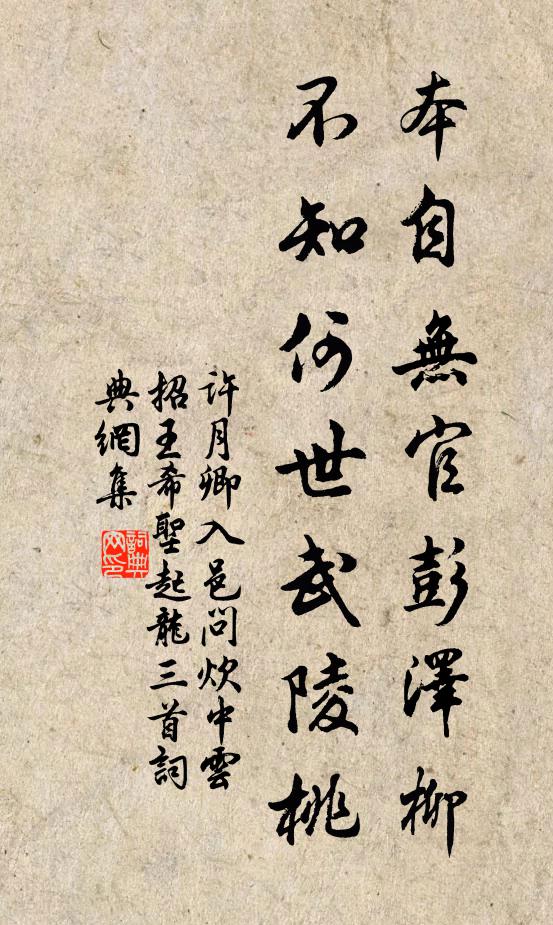 本自無官彭澤柳
不知何世武陵桃
許月卿入邑問炊中雲
招王希聖起龍三首詞
典網集
詞典网印